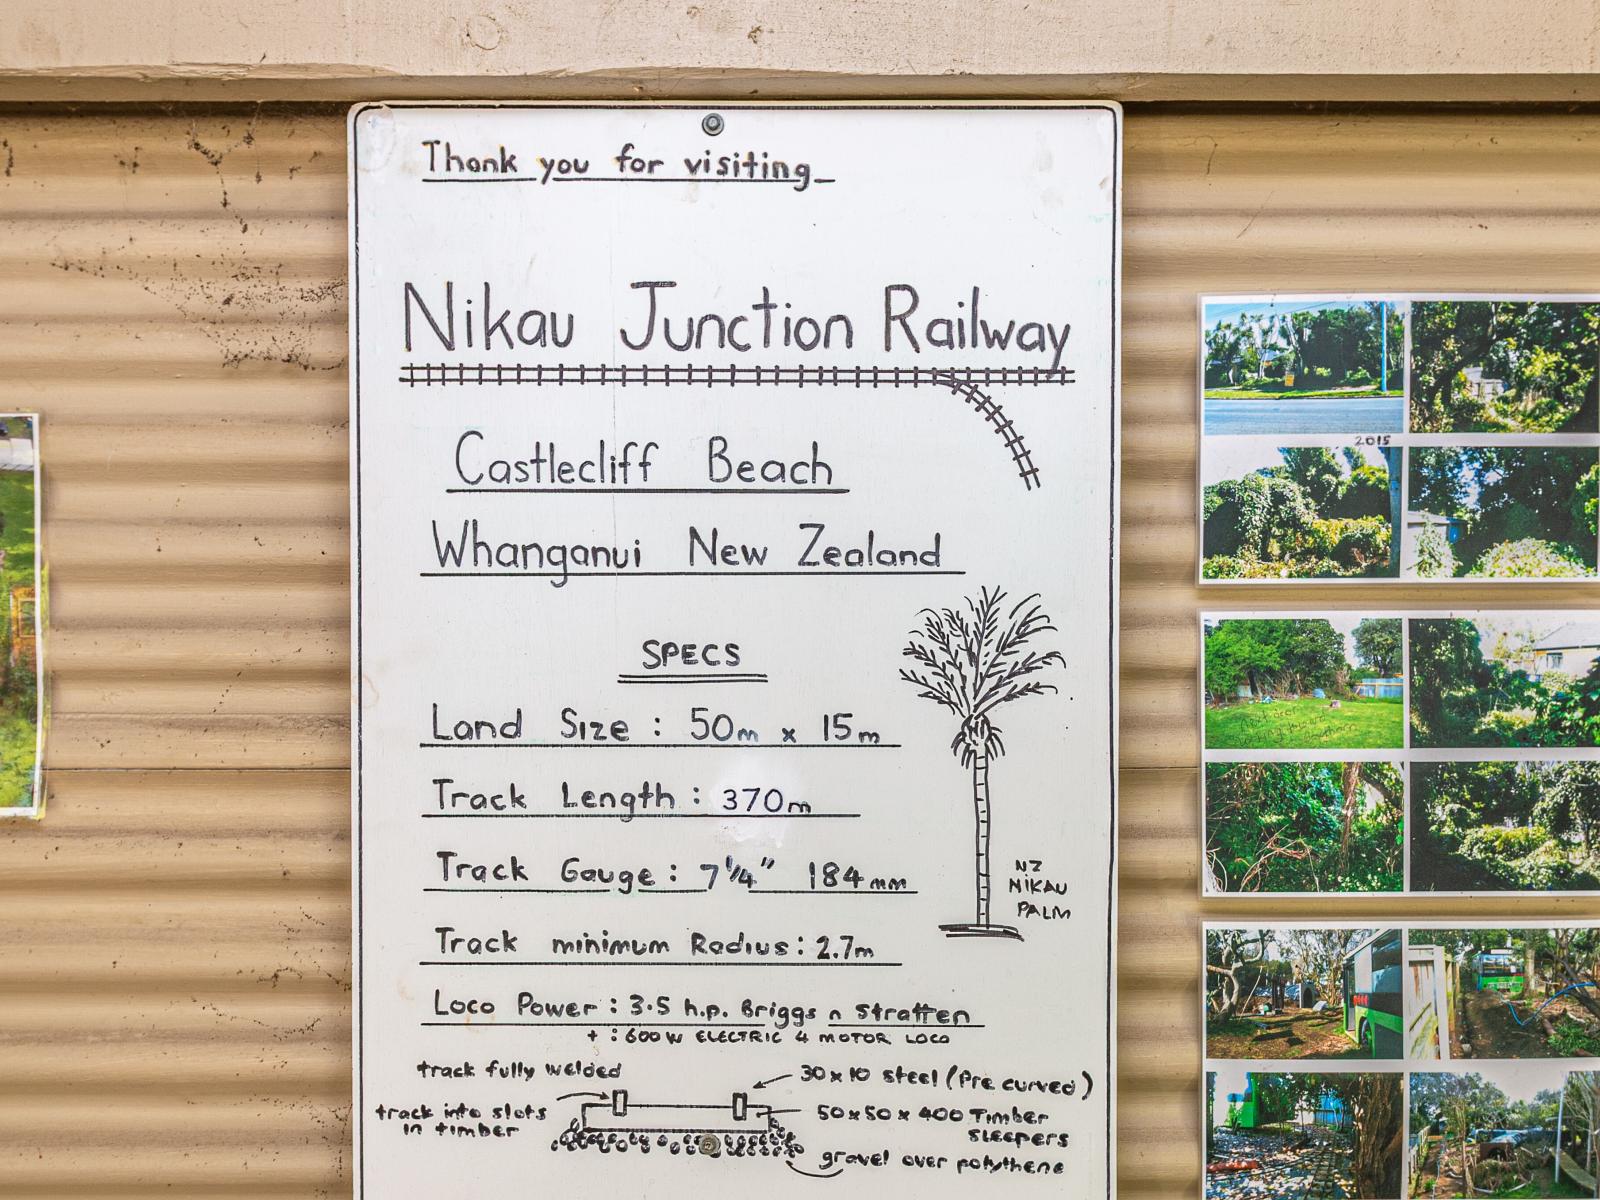 Thank you for visiting
Nikau Junction Railway
Castlecliff Beach
Whanganui New Zealand
SPECS
Land Size : 50m x 15m
Track Length : 370m
Track Gauge : 7 1/4" 184mm
Track minimum Radius : 2.7m
Loco Power : 3.5 h.p. Briggs n Stratten
+ : 600W ELECTRIC 4 MOTOR LOCO
NZ
NIKAU
PALM
track fully welded
30x10 steel (Pre curved)
track into slots
in timber
50x50x400 Timber
sleepers
gravel over polythene
2015